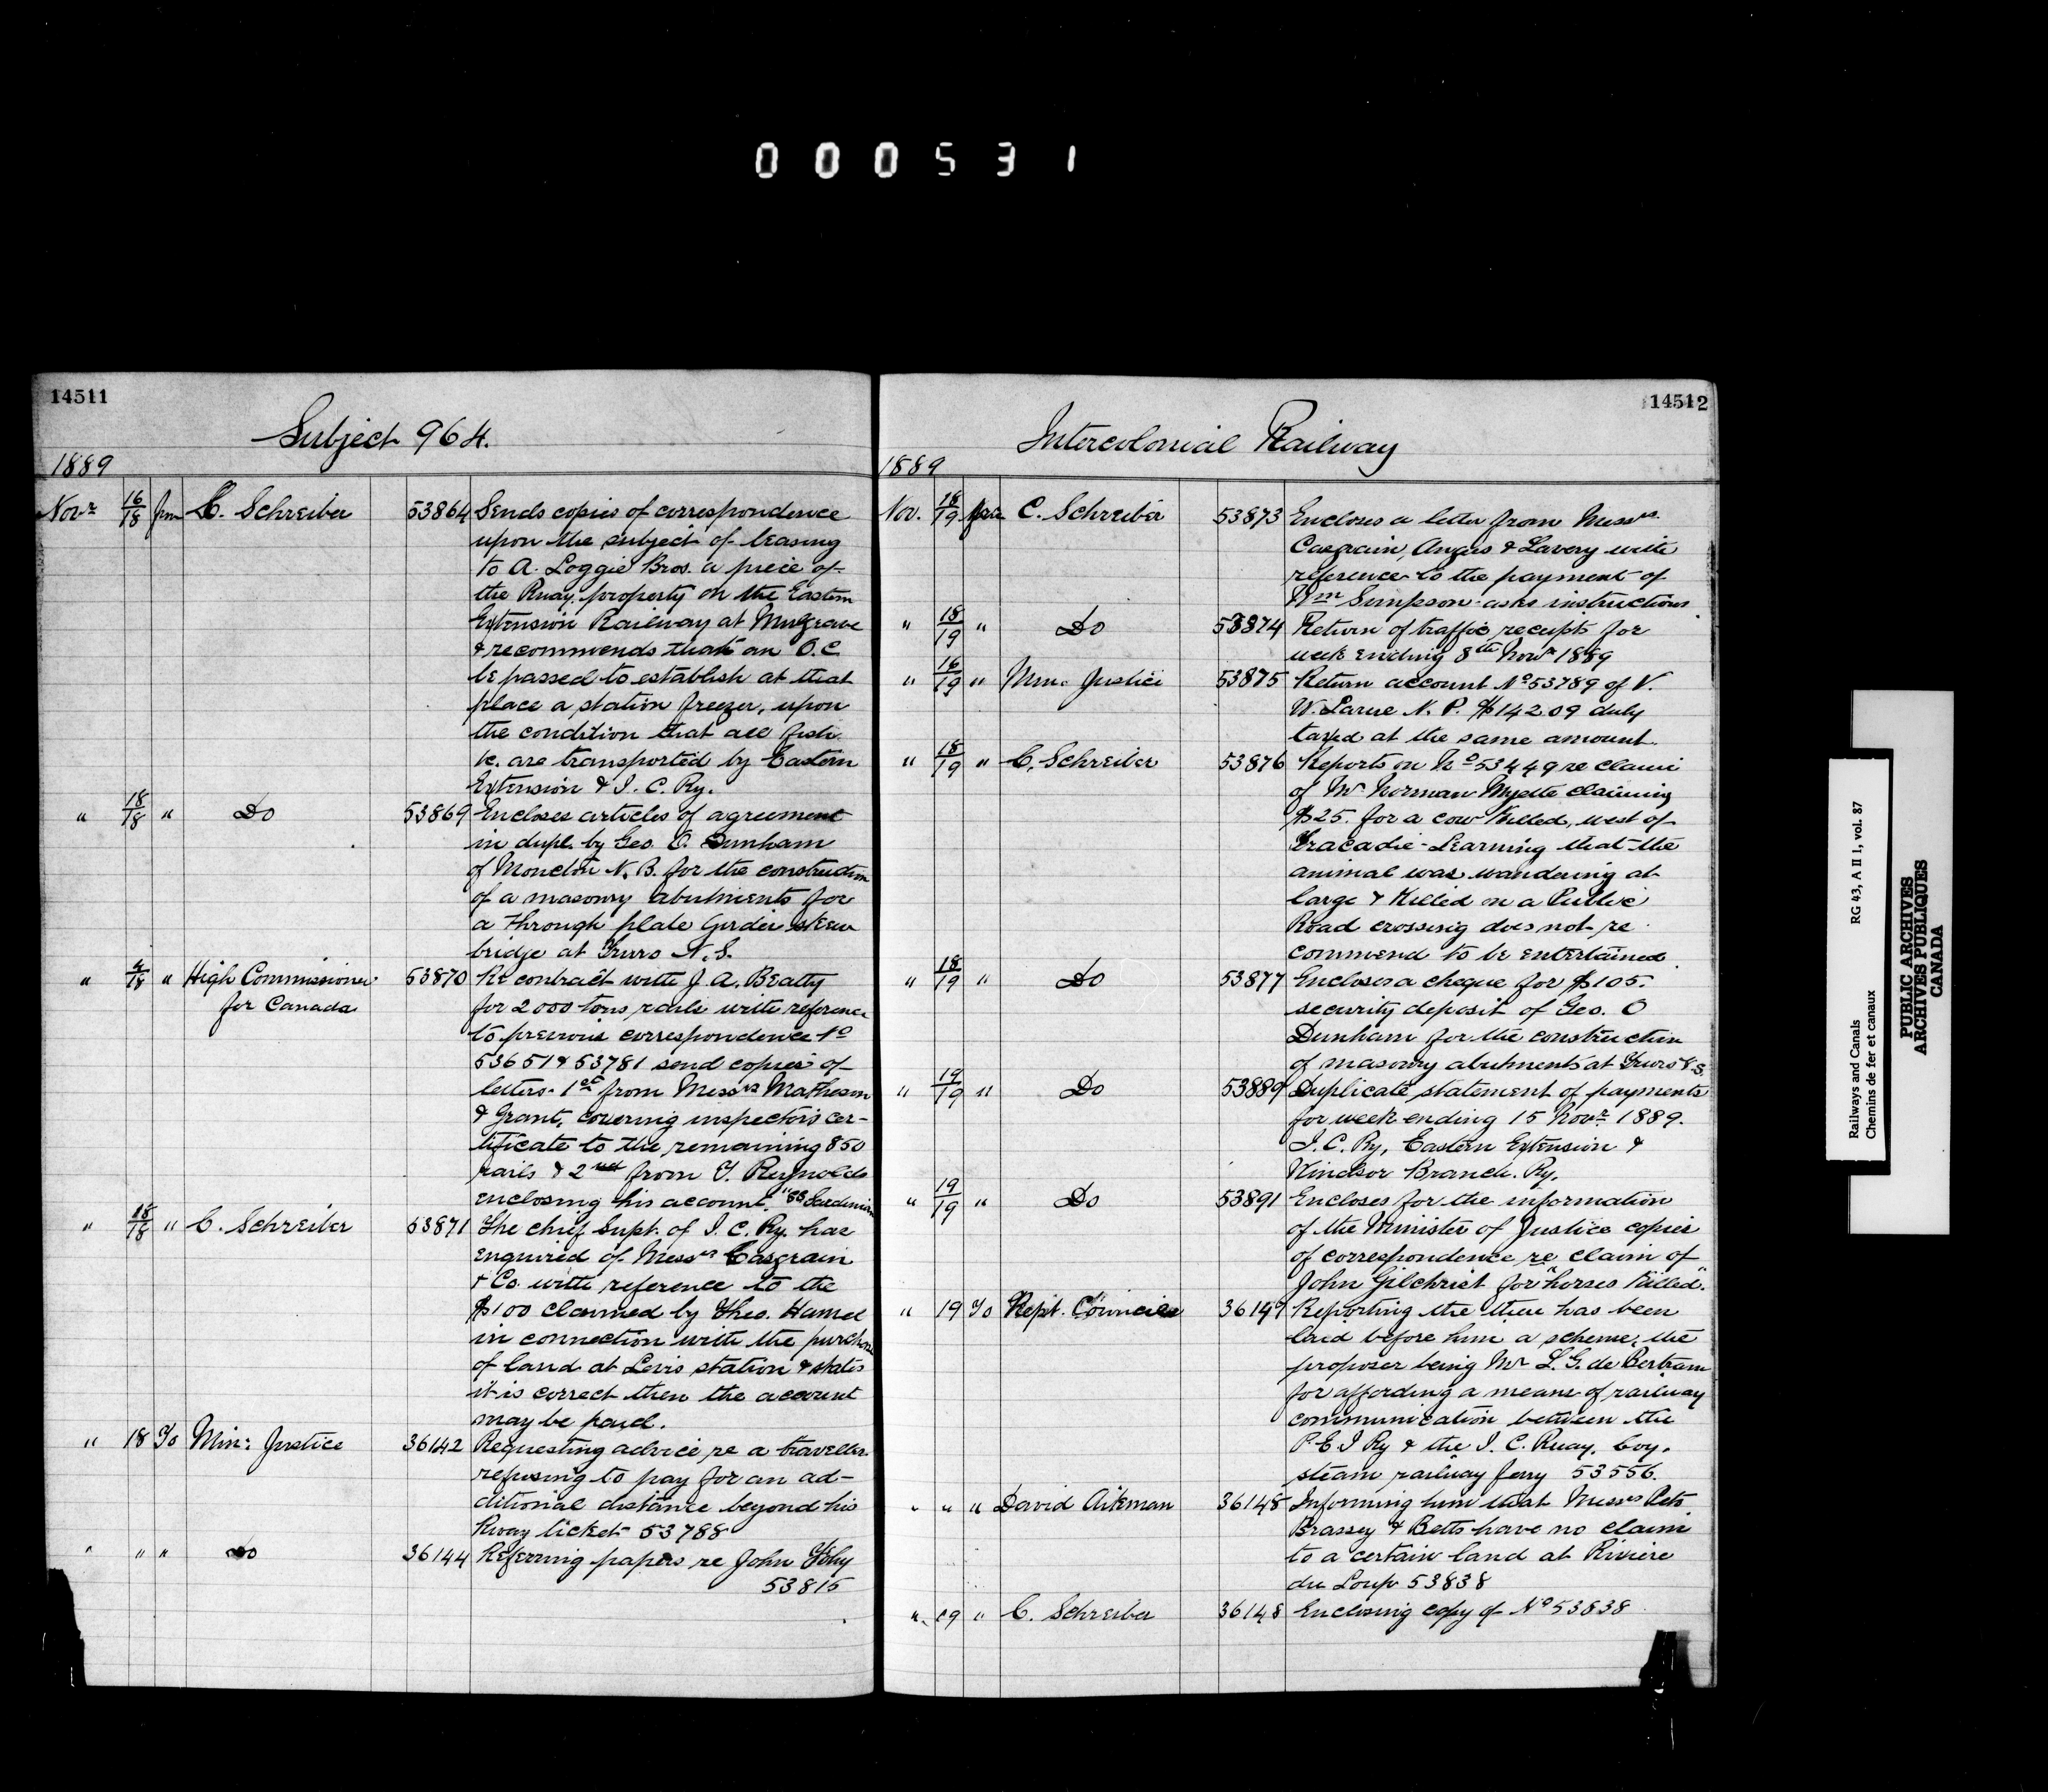 000531
14511
Subject 964.
1889
Novr 16/18 frm C. Schreiber 53864 Sends copies of correspondence
upon the subject of leasing
to A. Loggie Bros. a piece of
the Rway. property on the Eastern
Extension Railway at Mulgrave
& recommends that an O.C.
be passed to establish at that
place a station freezer, upon
the condition that all fish
&c. are transported by Eastern
Extension & I. C. Ry.
" 18/18 " Do 53869 Encloses articles of agreement
in dupl. by Geo. O. Dunham
of Moncton N.B. for the construction
of a masonry abutments for
a through plate Girder skew
bridge at Truro N.S.
" 4/18 " High Commissioner 53870 Re contract with J. A. Beatty
for Canada for 2000 tons rails with reference
to previous correspondence No
53651 & 53781 send copies of
letters - 1st from Messrs Matheson
& Grant, covering inspectors cer-
tificate to the remaining 850
rails & 2nd from T. Reynolds
enclosing his account. "SS Sardinian
" 18/18 " C. Schreiber 53871 The chief Supt. of I. C. Ry. has
enquired of Messrs Casgrain
& Co. with reference to the
$100 claimed by Theo. Hamel
in connection with the purchase
of land at Levis station & states
it is correct then the account
may be paid.
" 18 To Minr Justice 36142 Requesting advice re a traveller
refusing to pay for an ad-
ditional distance beyond his
Rway ticket 53788
" " " Do 36144 Referring papers re John
53815
14512
Intercolonial Railway
1889
Nov. 18/19 frm C. Schreiber 53873 Encloses a letter from Messrs
Casgrain, Angers & Lavery with
reference to the payment of
Wm Simpson - asks instructions
" 18/19 " Do 53874 Return of traffic receipts for
week ending 8th Novr 1889
" 16/19 " Min. Justice 53875 Return account No 53789 of V.
W. Larue N. P. $142.09 duly
taxed at the same amount.
" 18/19 " C. Schreiber 53876 Reports on No 53449 re claim
of Mr Norman Myette claiming
$25. for a cow killed, west of
Tracadie - Learning that the
animal was wandering at
large & killed on a Public
Road crossing does not re
commend to be entertained
" 18/19 " Do 53877 Encloses a cheque for $105.
security deposit of Geo. O
Dunham for the construction
of masonry abutments at Truro N.S.
" 19/19 " Do 53889 Duplicate statement of payments
for week ending 15 Novr 1889.
I. C. Ry, Eastern Extension &
Windsor Branch. Ry.
" 19/19 " Do 53891 Encloses for the information
of the Minister of Justice copies
of correspondence re claim of
John Gilchrist for "horses killed".
" 19 To Rept. Council 36147 Reporting the there has been
laid before him a scheme, the
proposer being Mr L. G. de Bertram
for affording a means of railway
communication between the
P.E.I Ry & the I. C. Rway. by a
steam railway ferry 53556.
" " " David Aikman 36148 Informing him that Messrs Peto
Brassey & Betts have no claim
to a certain land at Riviere
du Loup 53838
" 19 " C. Schreiber 36148 Enclosing copy of No 53838
Railways and Canals RG 43, A II 1, vol. 87
Chemins de fer et canaux
PUBLIC ARCHIVES
ARCHIVES PUBLIQUES
CANADA